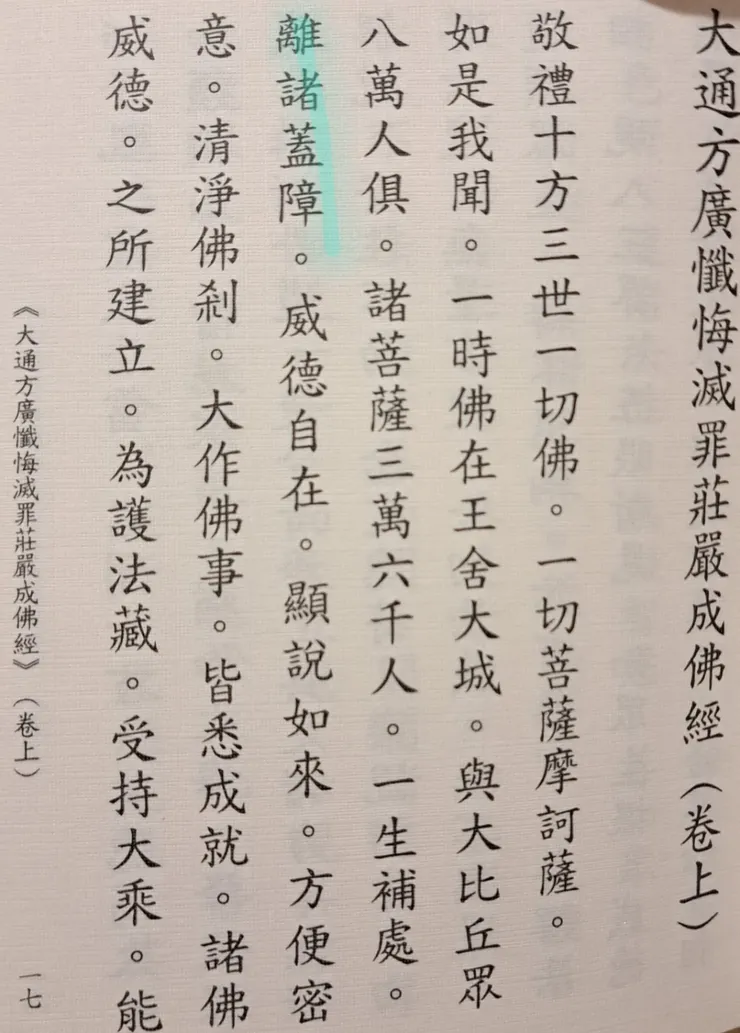 大通方廣懺悔滅罪莊嚴成佛經（卷上）
敬禮十方三世一切佛。一切菩薩摩訶薩。
如是我聞。一時佛在王舍大城。與大比丘眾
八萬人俱。諸菩薩三萬六千人。一生補處。
離諸蓋障。威德自在。顯說如來。方便密
意。清淨佛剎。大作佛事。皆悉成就。諸佛
威德。之所建立。為護法藏。受持大乘。能
《大通方廣懺悔滅罪莊嚴成佛經》（卷上）
一七